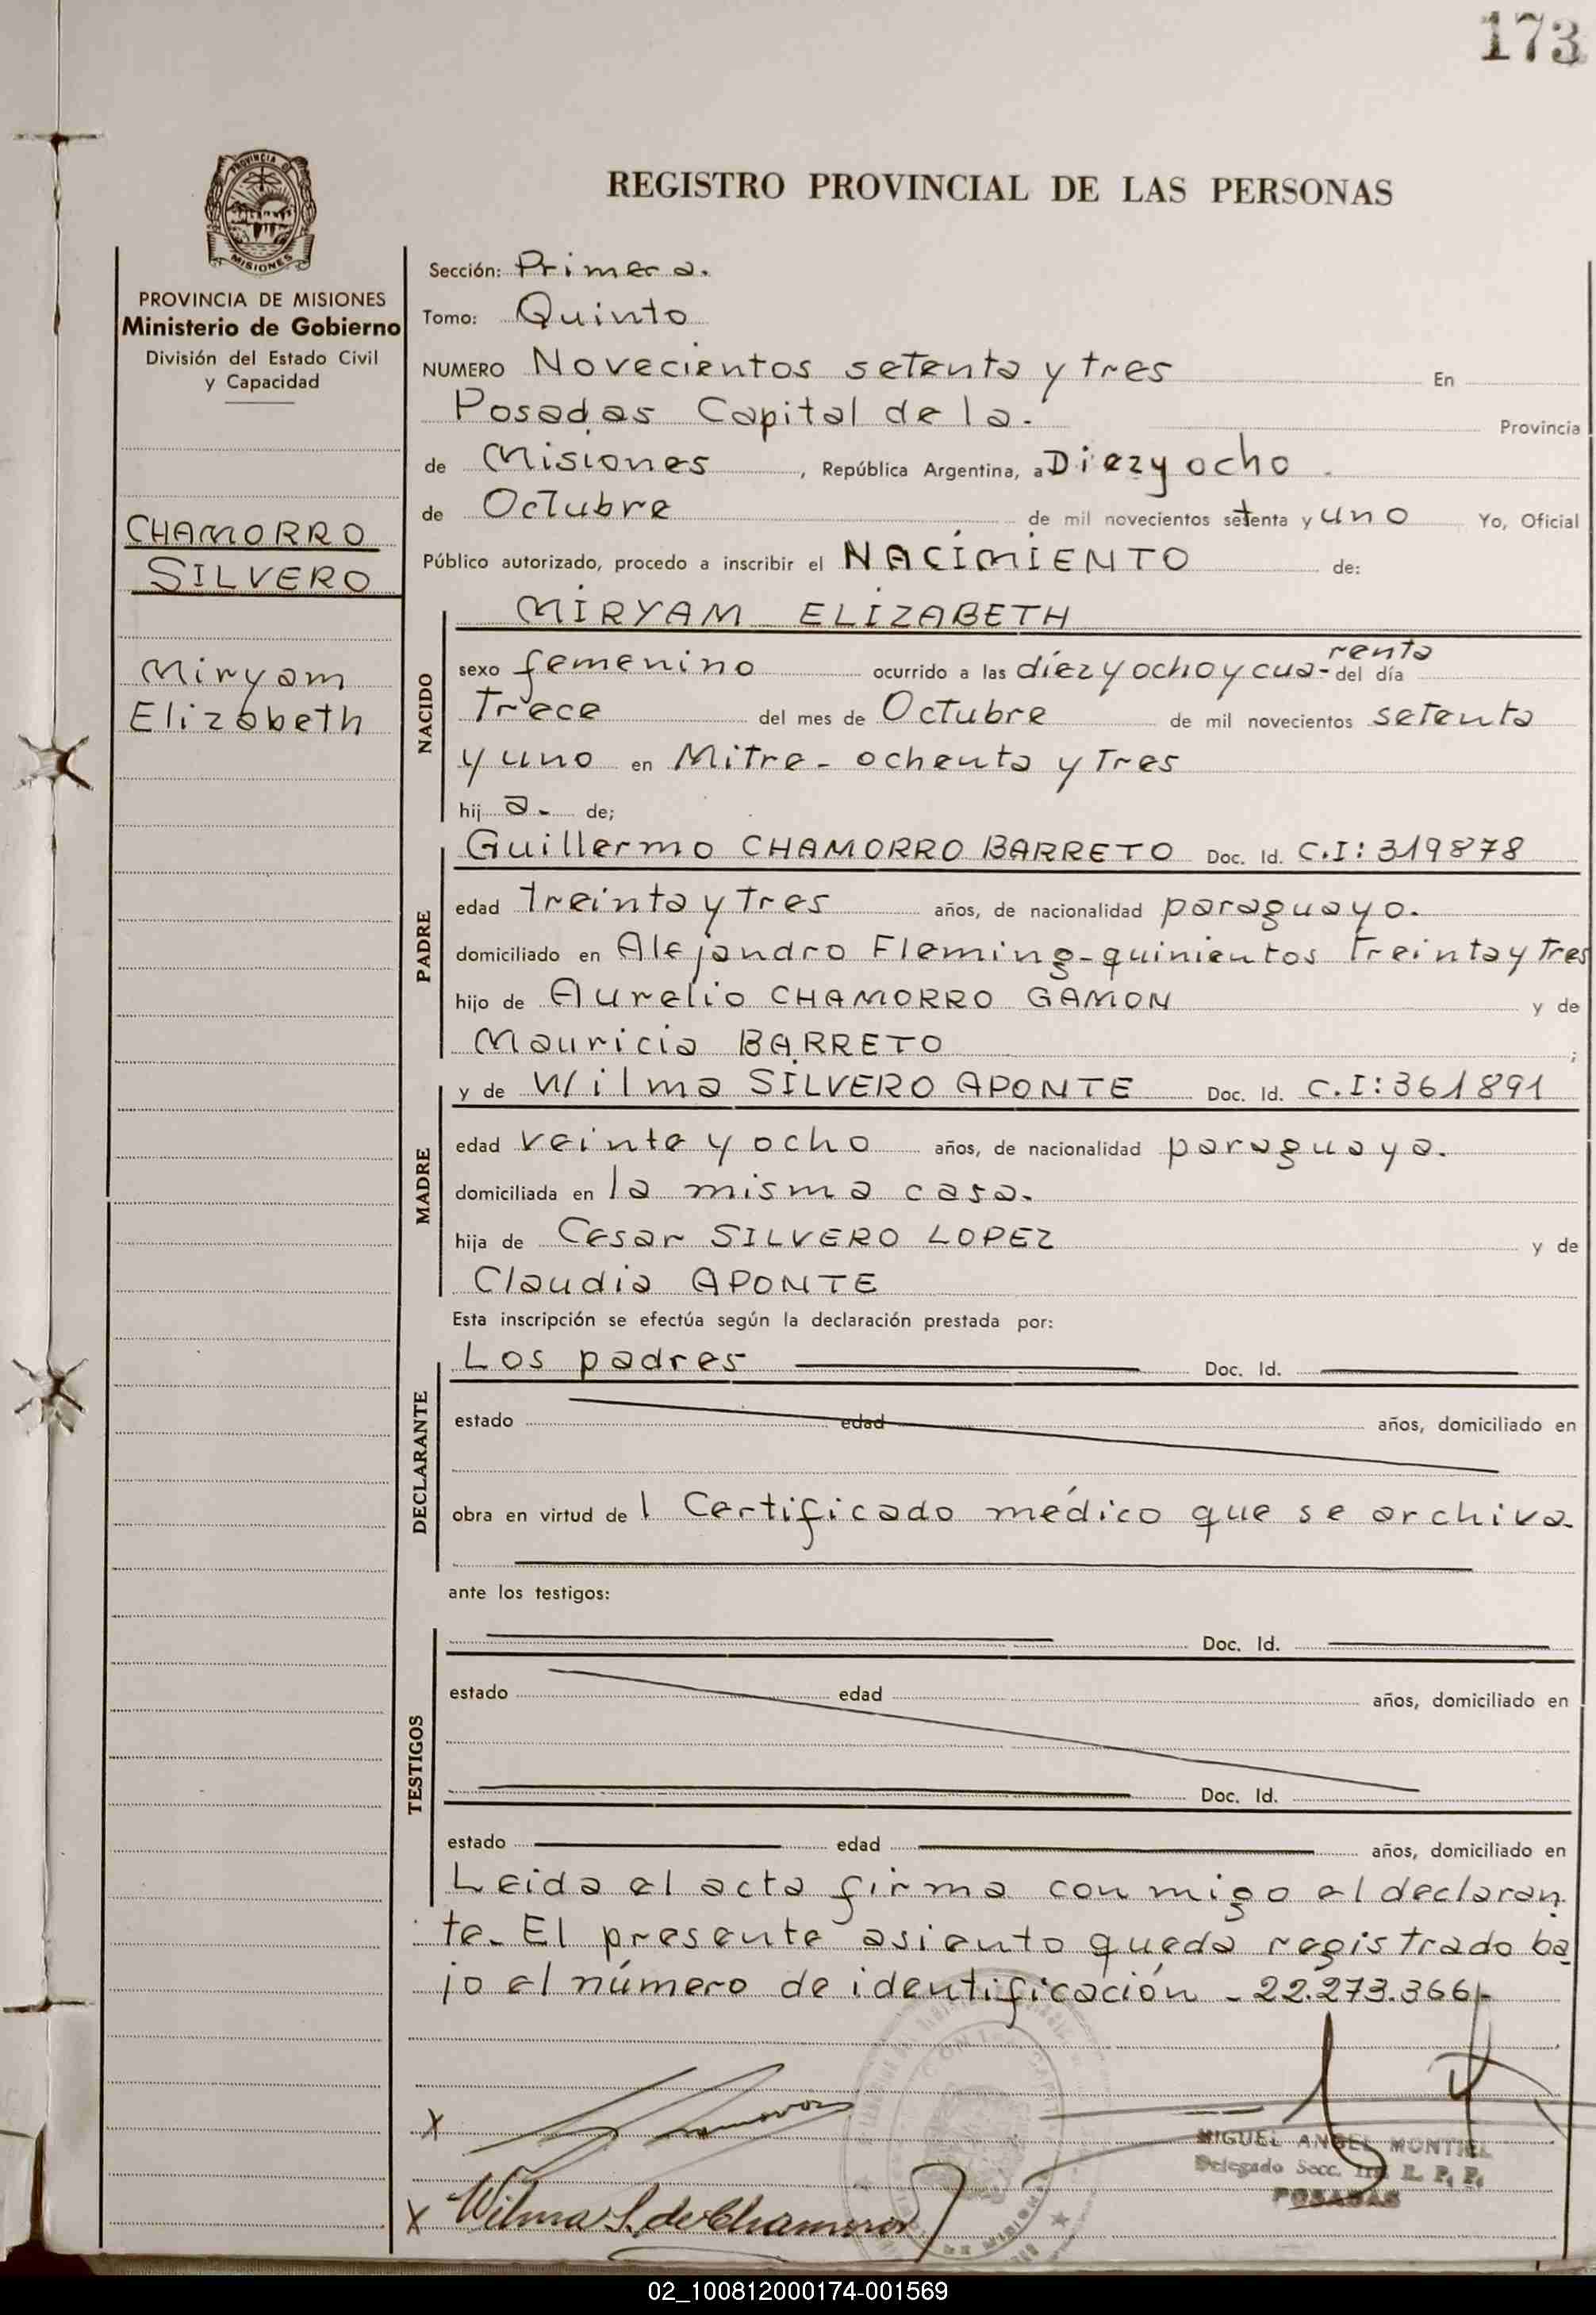 173
PROVINCIA DE
MISIONES
REGISTRO PROVINCIAL DE LAS PERSONAS
PROVINCIA DE MISIONES
Ministerio de Gobierno
División del Estado Civil
y Capacidad
CHAMORRO
SILVERO
Miryam
Elizabeth
Sección: Primera.
Tomo: Quinto
NUMERO Novecientos setenta y tres En
Posadas Capital de la. Provincia
de Misiones, República Argentina, a Diez y ocho
de Octubre de mil novecientos setenta y uno Yo, Oficial
Público autorizado, procedo a inscribir el NACIMIENTO de:
NACIDO
MIRYAM ELIZABETH
sexo femenino ocurrido a las díez y ocho y cua-renta del día
Trece del mes de Octubre de mil novecientos setenta
y uno en Mitre - ochenta y Tres
hij a. de;
PADRE
Guillermo CHAMORRO BARRETO Doc. Id. C.I: 319878
edad Treinta y Tres años, de nacionalidad paraguayo.
domiciliado en Alejandro Fleming-quinientos Treinta y Tres
hijo de Aurelio CHAMORRO GAMON y de
Mauricia BARRETO ;
MADRE
y de Wilma SILVERO APONTE Doc. Id. C.I: 361891
edad veinte y ocho años, de nacionalidad paraguaya.
domiciliada en la misma casa.
hija de Cesar SILVERO LOPEZ y de
Claudia APONTE
Esta inscripción se efectúa según la declaración prestada por:
DECLARANTE
Los padres Doc. Id.
estado edad años, domiciliado en
obra en virtud de 1 Certificado médico que se archiva
ante los testigos:
TESTIGOS
Doc. Id.
estado edad años, domiciliado en
Doc. Id.
estado edad años, domiciliado en
Leida el acta firma conmigo el declaran
te. El presente asiento queda registrado ba
jo el número de identificación - 22.273.366/-
X Chamorro
X Wilma S. de Chamorro
MIGUEL ANGEL MONTIEL
Delegado Secc. 1ra R. P. P.
POSADAS
02_100812000174-001569